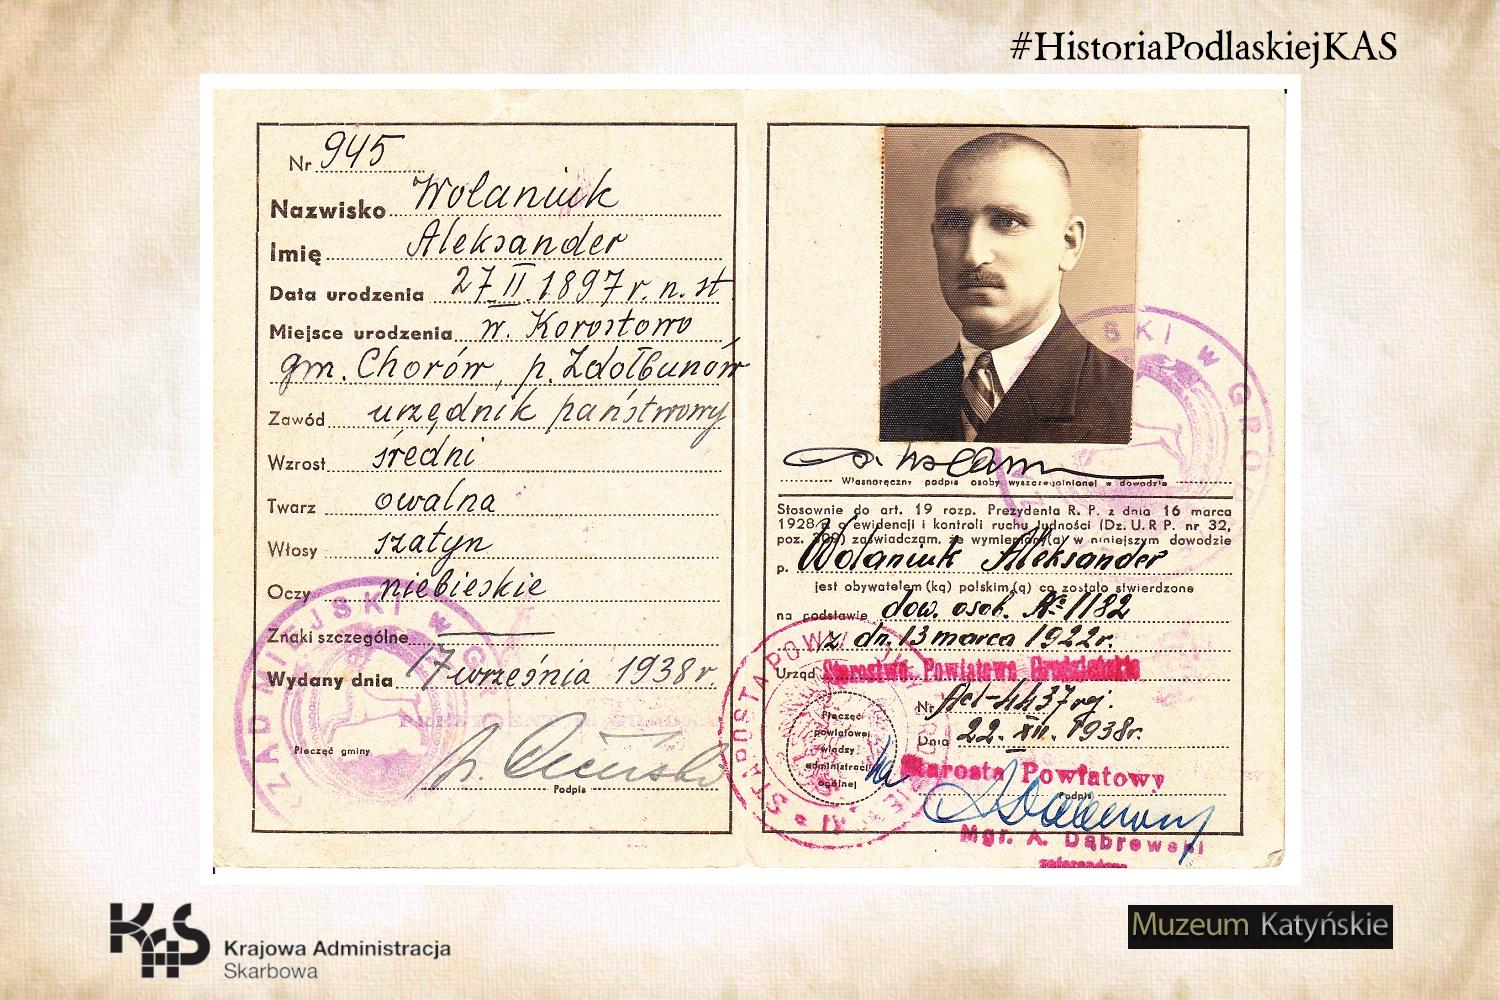 #HistoriaPodlaskiejKAS
Nr 945
Nazwisko Wolaniuk
Imię Aleksander
Data urodzenia 27 II 1897 r. n. st.
Miejsce urodzenia w. Korostowo
gm. Chorów, p. Zdołbunów
Zawód urzędnik państwowy
Wzrost średni
Twarz owalna
Włosy szatyn
Oczy niebieskie
Znaki szczególne
Wydany dnia 17 września 1938 r.
Pieczęć gminy
Podpis
Własnoręczny podpis osoby wyszczególnionej w dowodzie
Stosownie do art. 19 rozp. Prezydenta R. P. z dnia 16 marca
1928 r. o ewidencji i kontroli ruchu ludności (Dz. U. R P. nr 32,
poz. 309) zaświadczam, że wymieniony(a) w niniejszym dowodzie
p. Wolaniuk Aleksander
jest obywatelem (ką) polskim,(ą) co zostało stwierdzone
na podstawie dow. osob. № 1182
z dn. 13 marca 1922 r.
Urząd Starostwo Powiatowe Grodzieńskie
Nr
Dnia 22. XII. 1938 r.
Pieczęć
powiatowej
władzy
administracji
ogólnej
Starosta Powiatowy
Podpis
Mgr. A. Dąbrowski
referendarz
KAS
Krajowa Administracja
Skarbowa
Muzeum Katyńskie